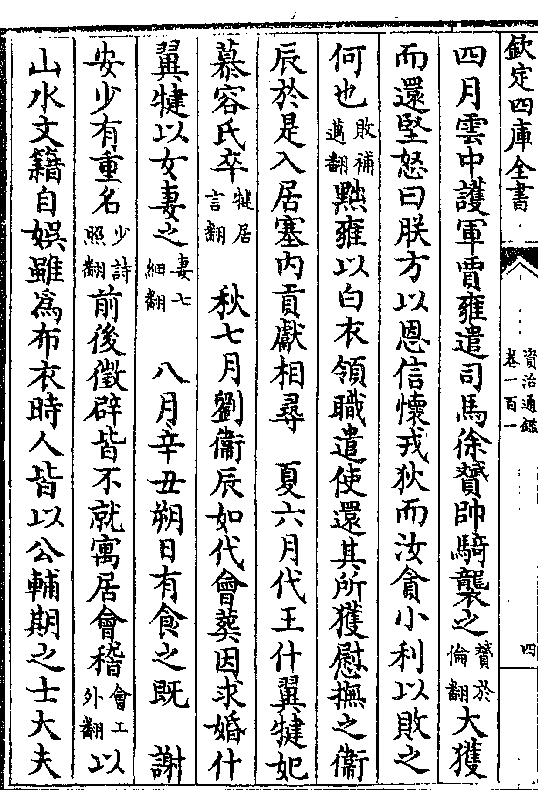 欽定四庫全書
資治通鑑
卷一百一
四
四月雲中護軍賈雍遣司馬徐贇帥騎襲之贇於倫翻大獲
而還堅怒曰朕方以恩信懷戎狄而汝貪小利以敗之
何也敗補邁翻黜雍以白衣領職遣使還其所獲慰撫之衞
辰於是入居塞内貢獻相尋 夏六月代王什翼犍妃
慕容氏卒犍居言翻 秋七月劉衞辰如代會葬因求婚什
翼犍以女妻之妻七細翻 八月辛丑朔日有食之既 謝
安少有重名少詩照翻前後徵辟皆不就寓居會稽會工外翻以
山水文籍自娛雖為布衣時人皆以公輔期之士大夫